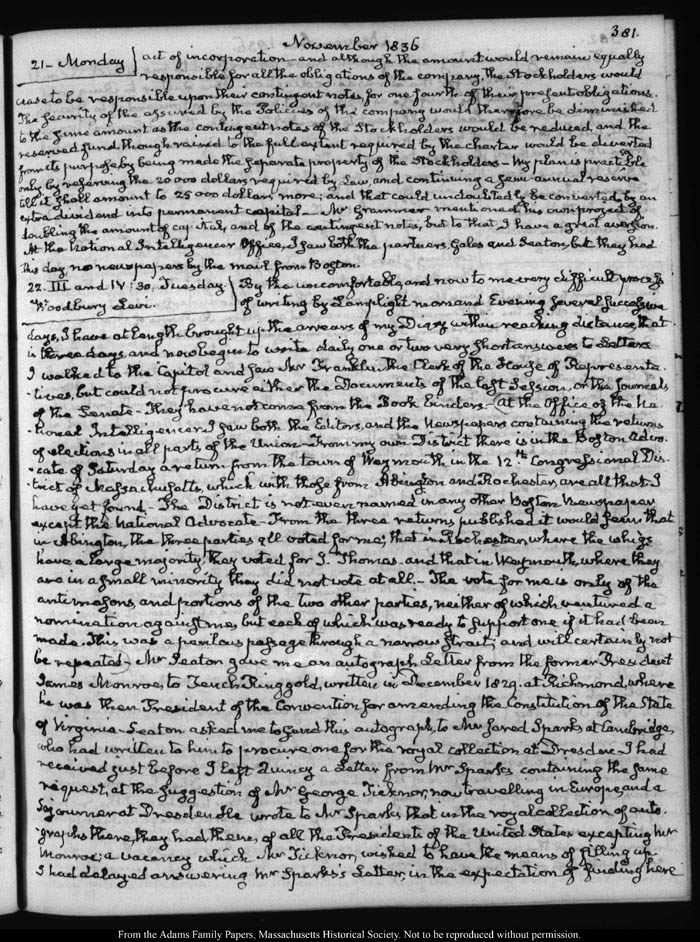 381.
November 1836
21 – Monday act of incorporation – and although the amount would remain equally
responsible for all the obligations of the company, the Stockholders would
cease to be responsible upon their contingent notes, for one fourth of their present obligations.
The security of the assured by the Policies of the company would therefore be diminished
to the same amount as the contingent notes of the Stockholders would be reduced, and the
reserved fund though raised to the full extent required by the charter would be diverted
from its purpose by being made the separate property of the Stockholders – My plan is practicable
only by reserving the 20 000 dollars required by Law, and continuing a semi-annual reserve
till it shall amount to 25 000 dollars more; and that could undoubtedly be converted by an
extra dividend into permanent capital – Mr Grammer mentioned his own project of
doubling the amount of capital, and of the contingent notes, but to that I have a great aversion.
At the National Intelligencer Office, I saw both the partners, Gales and Seaton, but they had
this day no newspapers by the mail from Boston.
22. III and IV: 30. Tuesday. By the uncomfortable, and now to me very difficult process
Woodbury Levi. of writing by Lamplight morn and Evening several successive
days, I have at length brought up the arrears of my Diary within reaching distance, that
is three days, and now begin to write daily one or two very short answers to Letters
I walked to the Capitol and saw Mr Franklin, the Clerk of the House of Representa
-tives, but could not procure either the Documents of the last Session, or the Journals
of the Senate – They have not come from the Book binders – At the Office of the Na
-tional Intelligencer I saw both the Editors, and the Newspapers containing the returns
of elections in all parts of the Union – From my own District there is in the Boston Advo
-cate of Saturday a return from the town of Weymouth, in the 12th Congressional Dis-
trict of Massachusetts, which with those from Abington and Rochester, are all that I
have yet found – The District is not even named in any other Boston Newspaper
except the National Advocate – From the three returns published it would seem that
in Abington, the three parties all voted for me; that in Rochester, where the whigs
have a large majority, they voted for S. Thomas – and that in Weymouth, where they
are in a small minority they did not vote at all. – The vote for me is only of the
antimasons, and portions of the two other parties, neither of which ventured a
nomination against me, but each of which was ready to support one if it had been
made. This was a perilous passage through a narrow Strait; and will certainly not
be repeated – Mr Seaton gave me an autograph Letter from the former President
James Monroe, to Tench Ringgold, written in December 1829. at Richmond, where
he was then President of the Convention for amending the Constitution of the State
of Virginia – Seaton asked me to send this autograph, to Mr Jared Sparks at Cambridge,
who had written to him to procure one for the royal collection at Dresden – I had
received just before I left Quincy a Letter from Mr Sparks containing the same
request, at the suggestion of Mr George Ticknor, now travelling in Europe, and a
Sojourner at Dresden – He wrote to Mr Sparks that in the royal collection of auto-
graphs there, they had them, of all the Presidents of the United States excepting Mr
Monroe; a vacancy which Mr Ticknor, wished to have the means of filling up
I had delayed answering Mr Sparks's Letter, in the expectation of finding here
From the Adams Family Papers, Massachusetts Historical Society. Not to be reproduced without permission.